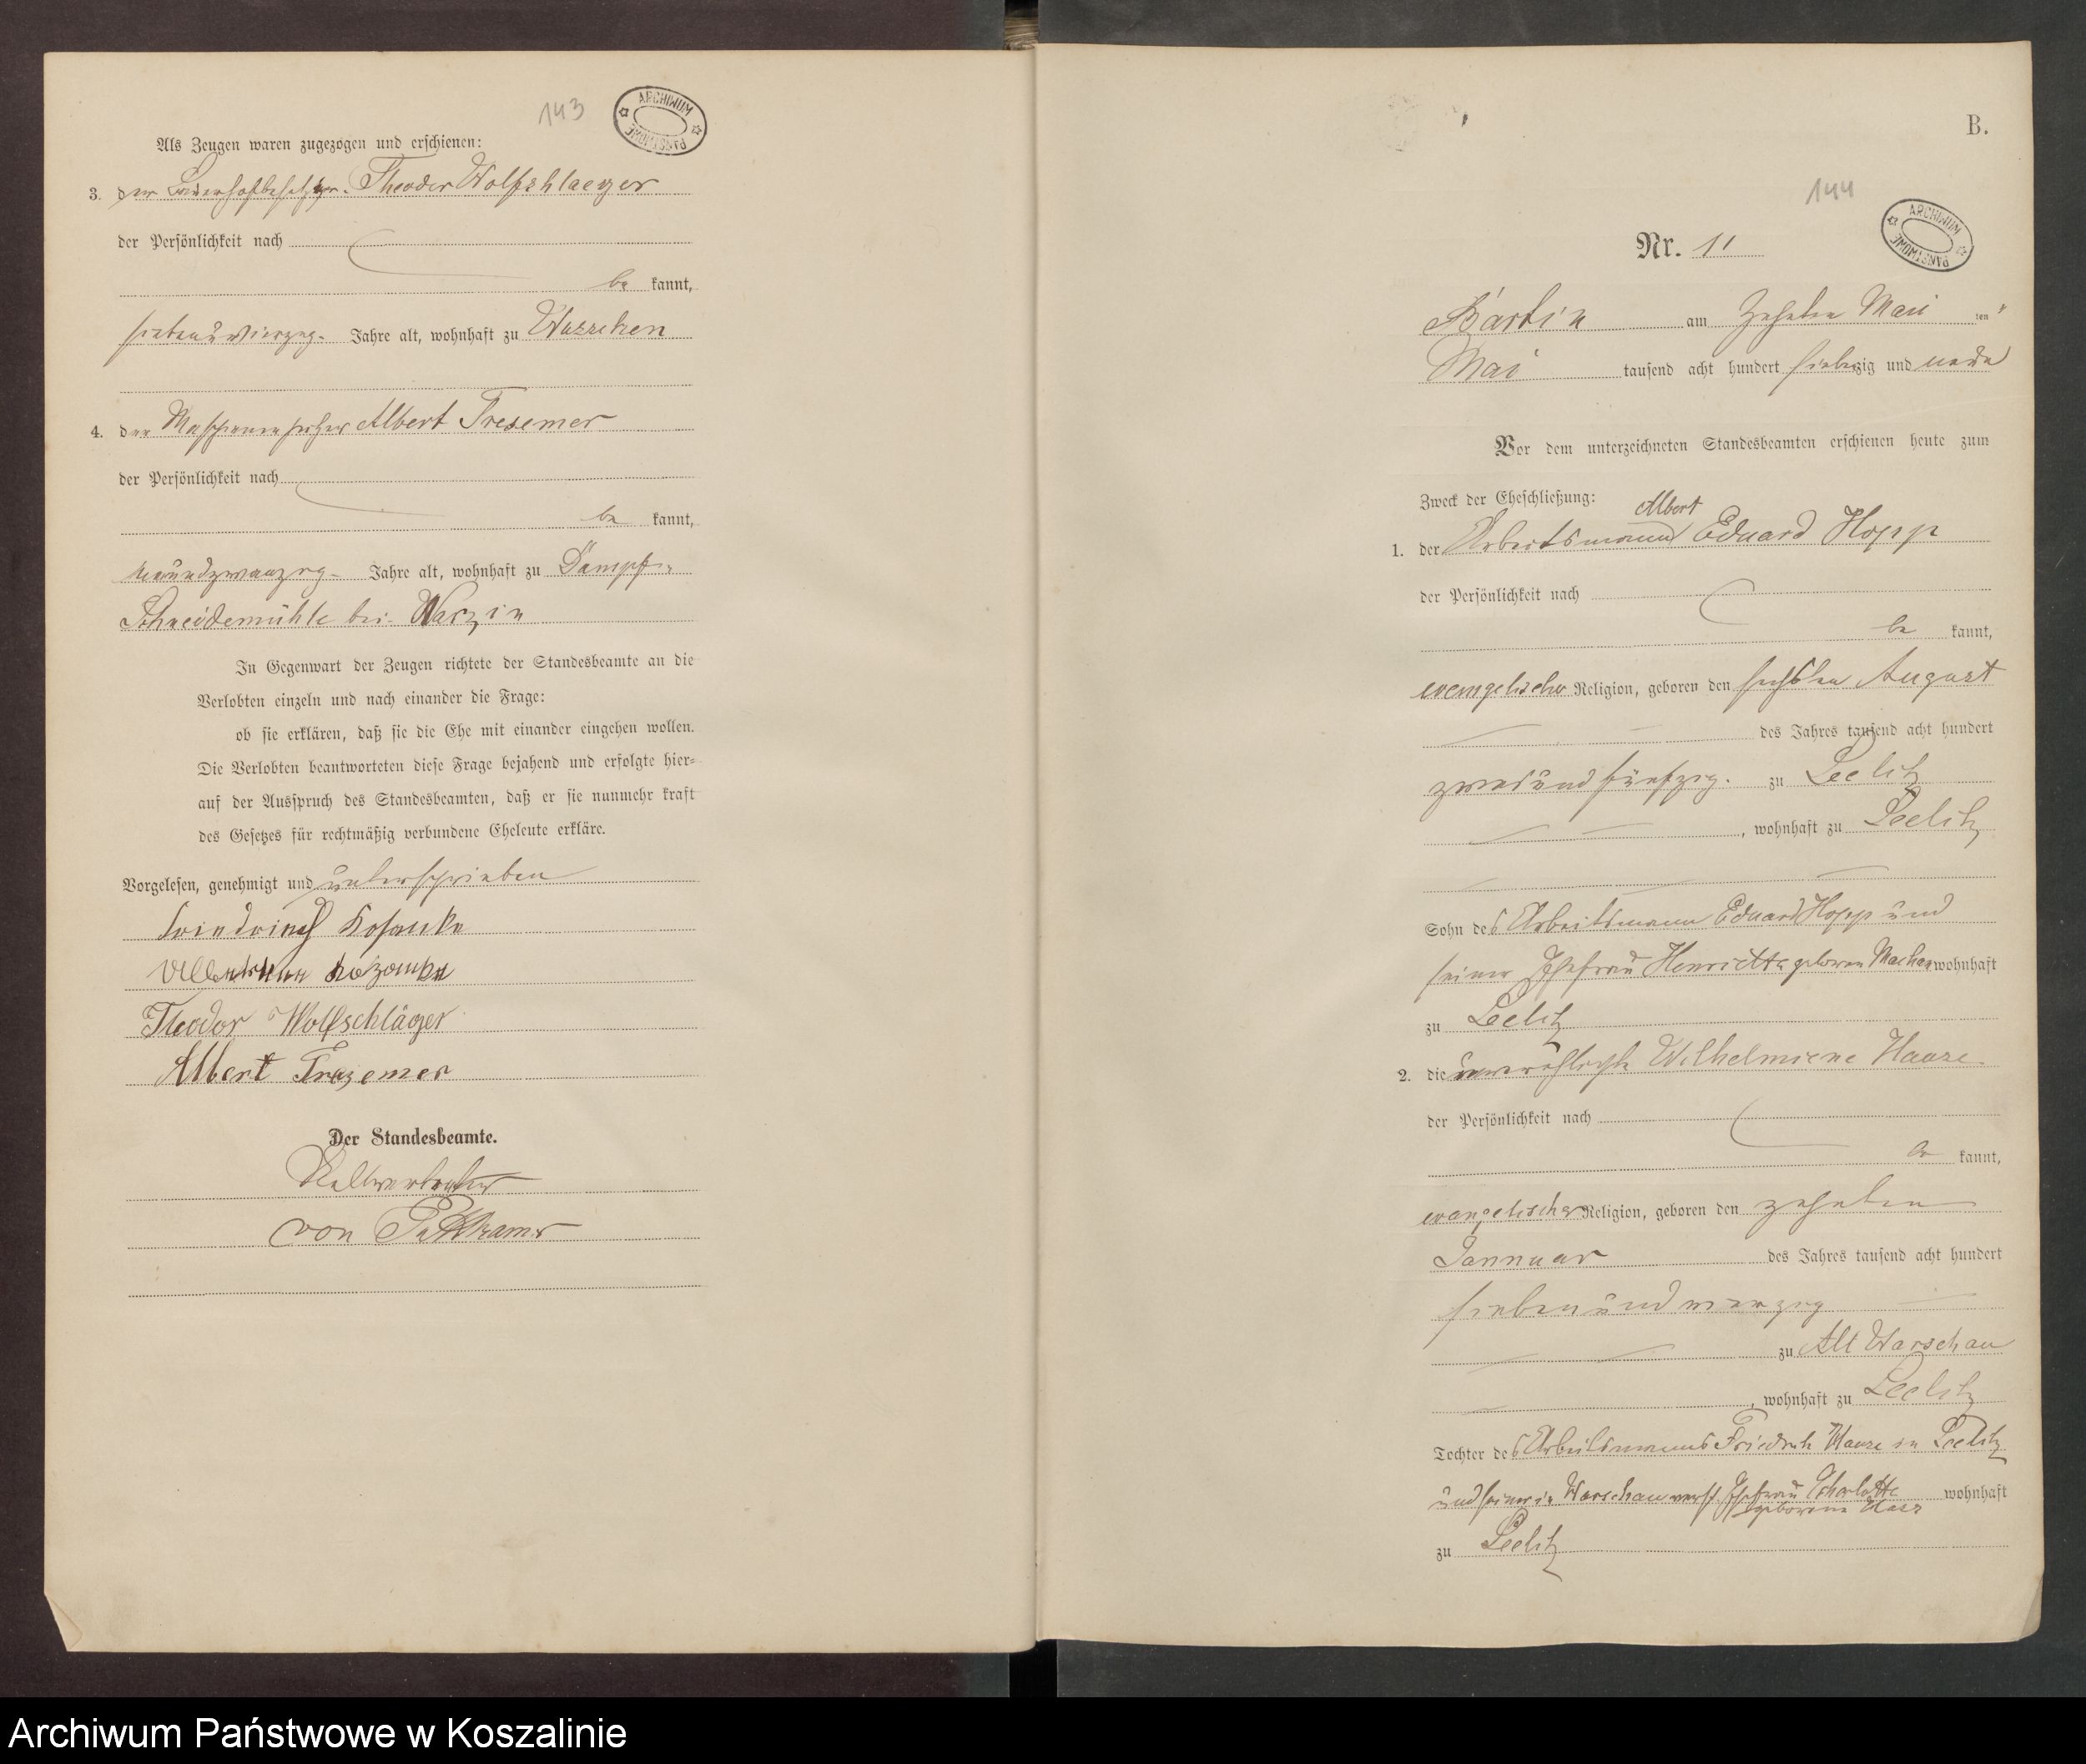 143
ARCHIWUM PAŃSTWOWE
Als Zeugen waren zugezogen und erschienen:
3. der Theodor Wolfschlaeger
der Persönlichkeit nach
be kannt,
siebenundvierzig Jahre alt, wohnhaft zu Wussecken
4. der Albert Tresemer
der Persönlichkeit nach
be kannt,
Jahre alt, wohnhaft zu Dampf-
Schneidemühle bei Warzin
In Gegenwart der Zeugen richtete der Standesbeamte an die
Verlobten einzeln und nach einander die Frage:
ob sie erklären, daß sie die Ehe mit einander eingehen wollen.
Die Verlobten beantworteten diese Frage bejahend und erfolgte hier-
auf der Ausspruch des Standesbeamten, daß er sie nunmehr kraft
des Gesetzes für rechtmäßig verbundene Eheleute erkläre.
Vorgelesen, genehmigt und unterschrieben
Theodor Wolfschläger
Albert Trezemer
Der Standesbeamte.
von Puttkamer
B.
144
ARCHIWUM PAŃSTWOWE
Nr. 11
Bartin am zehnten Mai ten
Mai tausend acht hundert siebenzig und neun
Vor dem unterzeichneten Standesbeamten erschienen heute zum
Zweck der Eheschließung:
Albert
1. der Arbeitsmann Eduard Hopp
der Persönlichkeit nach
be kannt,
evangelischer Religion, geboren den sechsten August
des Jahres tausend acht hundert
zweiundfünfzig zu Seelitz
, wohnhaft zu Seelitz
Sohn des Arbeitsmann Eduard Hopp und
seiner Ehefrau Henriette geboren wohnhaft
zu Seelitz
2. die unverehelichte Wilhelmiene Haase
der Persönlichkeit nach
be kannt,
evangelischer Religion, geboren den zehnten
Jannuar des Jahres tausend acht hundert
siebenundvierzig
zu Alt Warschau
, wohnhaft zu Seelitz
Tochter des Arbeitsmanns Friedrich Haase in Seelitz
und seiner in Warschau verst. Ehefrau Charlotte wohnhaft
geborene
zu Seelitz
Archiwum Państwowe w Koszalinie